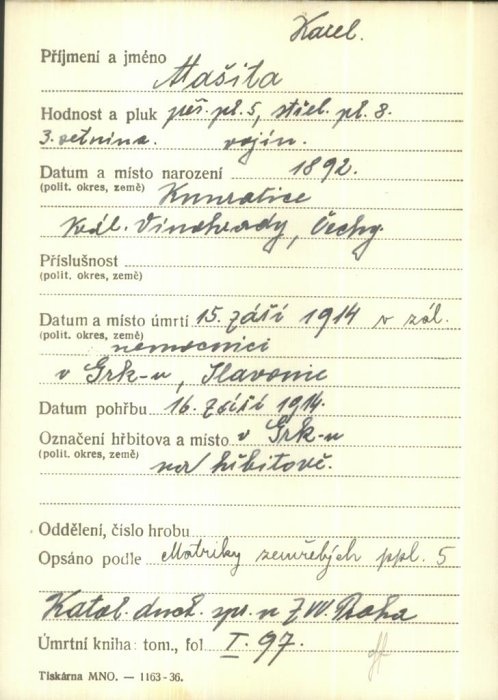 Karel.
Příjmení a jméno Mašita
Hodnost a pluk pěš. pl. 5, střel. pl. 8.
3. setnina. vojín.
Datum a místo narození 1892.
(polit. okres, země) Kunratice
Král. Vinohrady, Čechy.
Příslušnost
(polit. okres, země)
Datum a místo úmrtí 15. září 1914 v zál.
(polit. okres, země) nemocnici
v Grk-u, Slavonie
Datum pohřbu 16. září 1914.
Označení hřbitova a místo v Grk-u
(polit. okres, země) na hřbitově.
Oddělení, číslo hrobu
Opsáno podle Matriky zemřelých ppl. 5
Katol. duch. spr. u ZVV. Praha
Úmrtní kniha: tom., fol. I. 97.
Tiskárna MNO. — 1163-36.